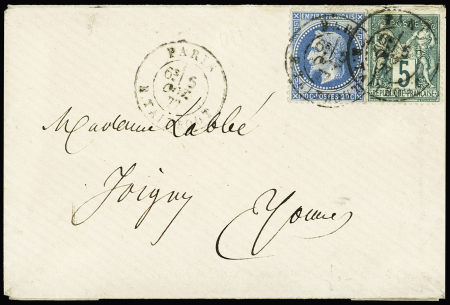 PARIS
EMPIRE FRANÇAIS
5
RÉPUBLIQUE FRANÇAISE
Madame Labbé
Joigny
Yonne